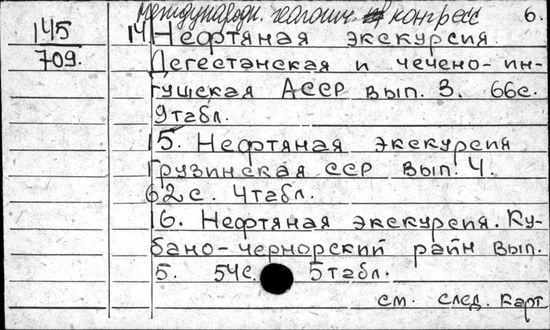 Международн. геологич. конгресс 6.
145
709.
14 Нефтяная экскурсия.
Дегестанская и чечено-ин-
гушская АССР вып. 3. 66с.
9табл.
15. Нефтяная экскурсия
Грузинская ССР вып. 4.
62с. 4табл.
16. Нефтяная экскурсия. Ку-
бано-чернорский райн вып.
5. 54с. 5табл.
см. след. карт